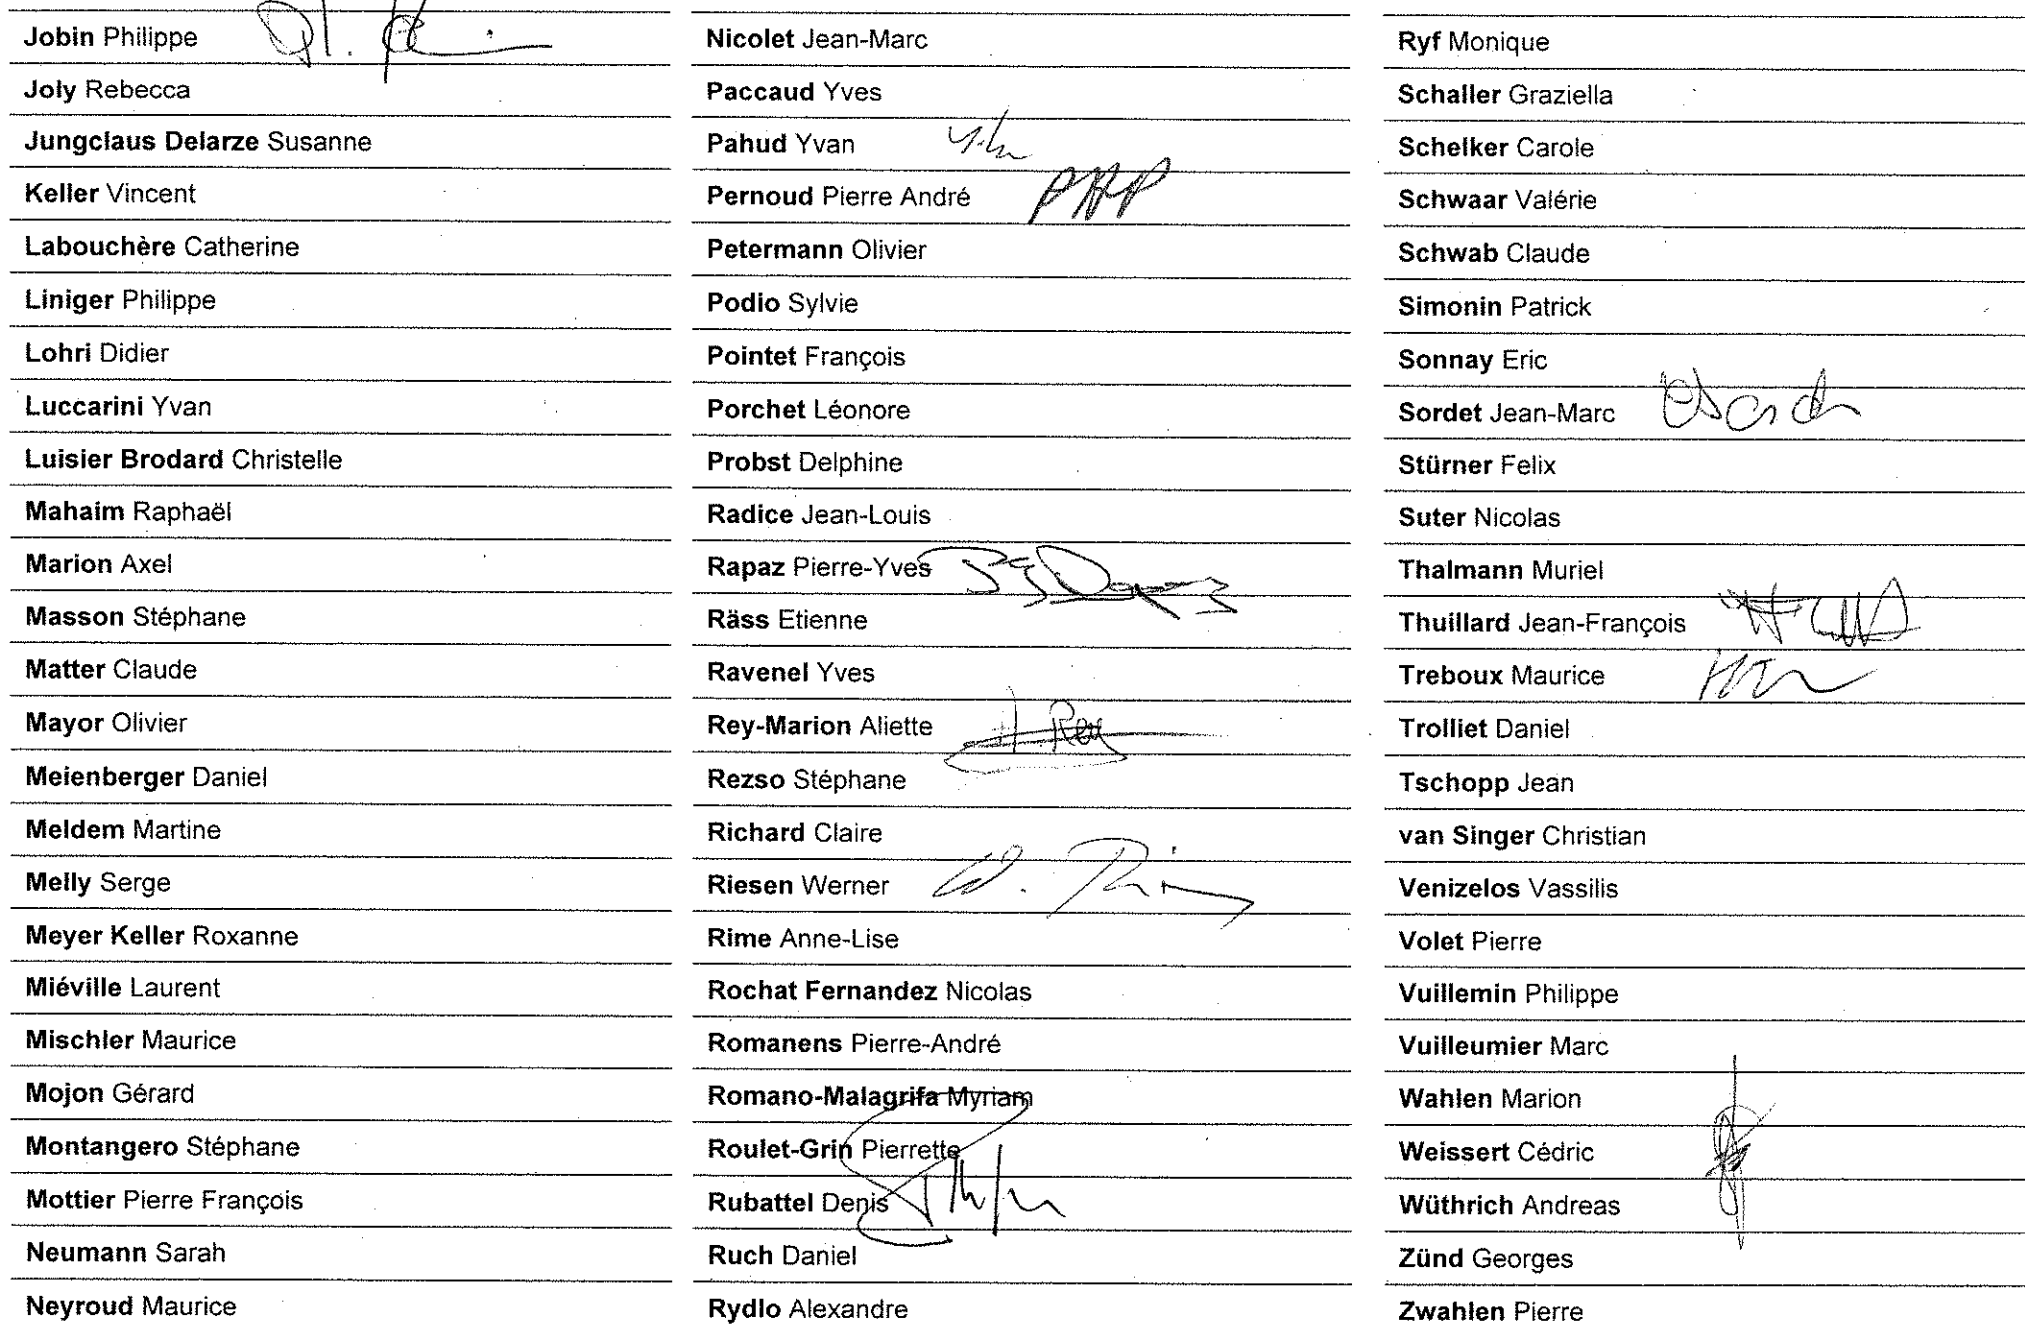 Jobin Philippe
Joly Rebecca
Jungclaus Delarze Susanne
Keller Vincent
Labouchère Catherine
Liniger Philippe
Lohri Didier
Luccarini Yvan
Luisier Brodard Christelle
Mahaim Raphaël
Marion Axel
Masson Stéphane
Matter Claude
Mayor Olivier
Meienberger Daniel
Meldem Martine
Melly Serge
Meyer Keller Roxanne
Miéville Laurent
Mischler Maurice
Mojon Gérard
Montangero Stéphane
Mottier Pierre François
Neumann Sarah
Neyroud Maurice
Nicolet Jean-Marc
Paccaud Yves
Pahud Yvan
Pernoud Pierre André PAP
Petermann Olivier
Podio Sylvie
Pointet François
Porchet Léonore
Probst Delphine
Radice Jean-Louis
Rapaz Pierre-Yves
Räss Etienne
Ravenel Yves
Rey-Marion Aliette A. Rey
Rezso Stéphane
Richard Claire
Riesen Werner
Rime Anne-Lise
Rochat Fernandez Nicolas
Romanens Pierre-André
Romano-Malagrifa Myriam
Roulet-Grin Pierrette
Rubattel Denis
Ruch Daniel
Rydlo Alexandre
Ryf Monique
Schaller Graziella
Schelker Carole
Schwaar Valérie
Schwab Claude
Simonin Patrick
Sonnay Eric
Sordet Jean-Marc
Stürner Felix
Suter Nicolas
Thalmann Muriel
Thuillard Jean-François
Treboux Maurice
Trolliet Daniel
Tschopp Jean
van Singer Christian
Venizelos Vassilis
Volet Pierre
Vuillemin Philippe
Vuilleumier Marc
Wahlen Marion
Weissert Cédric
Wüthrich Andreas
Zünd Georges
Zwahlen Pierre